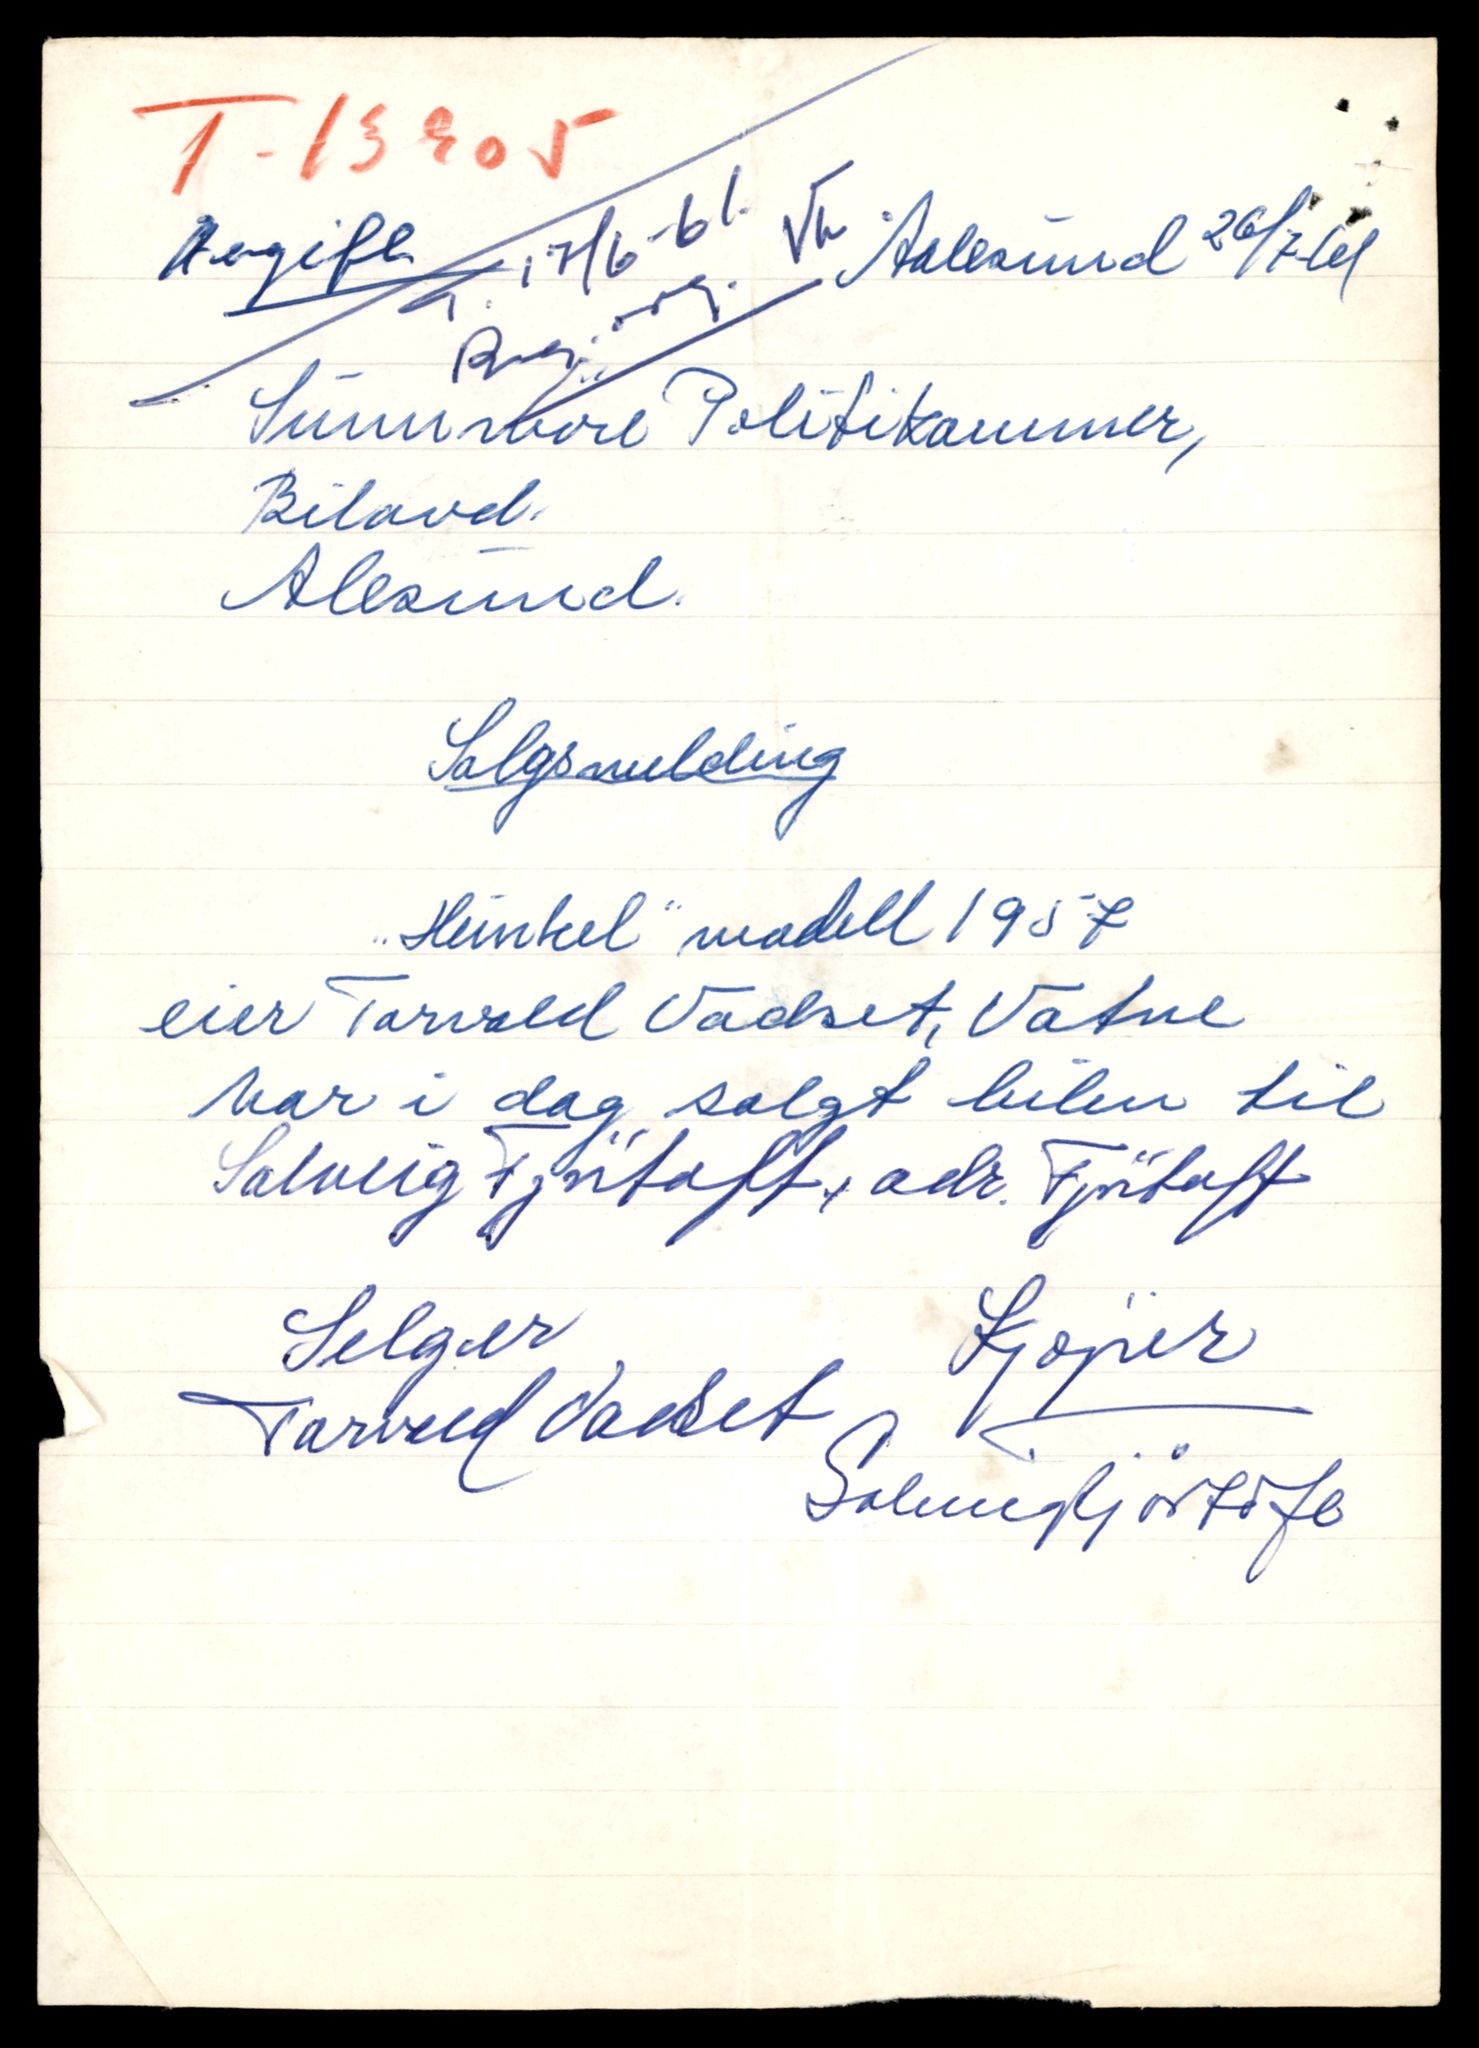 T-13905
Avgift
17/6-61.
Aalesund 26/7-61
Sunnmøre Politikammer,
Bilavd.
Alesund.
Salgsmelding
„Heinkel" modell 1957
eier Torvald Vadset, Vatne
har i dag solgt bilen til
Solveig Fjörtoft, adr. Fjörtoft
Selger
Kjøper
Torvald Vadset
Solveig Fjörtoft